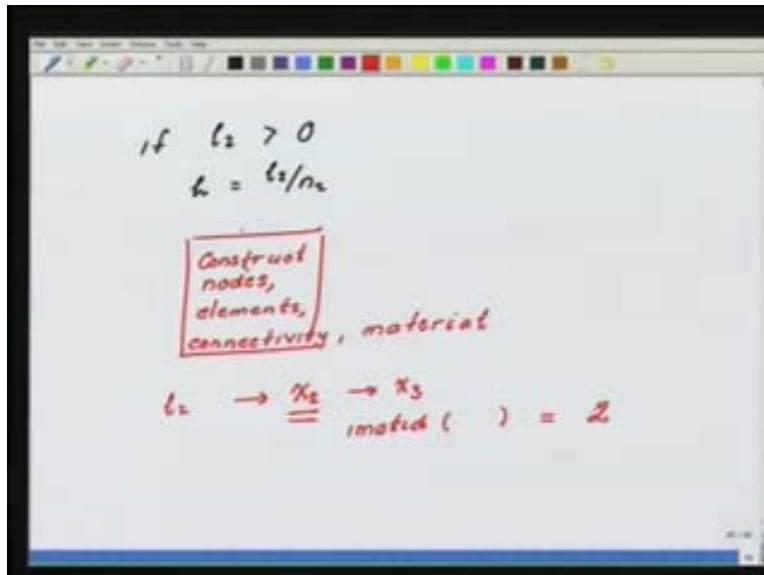 if l₂ > 0
h = l₂/n₂
Construct
nodes,
elements,
connectivity, material
l₂ → x₂ → x₃
imatid ( ) = 2